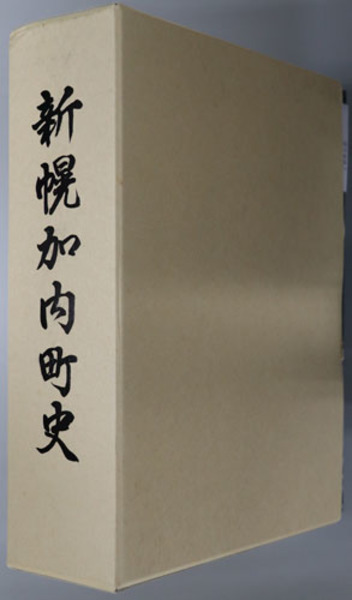 新幌加内町史